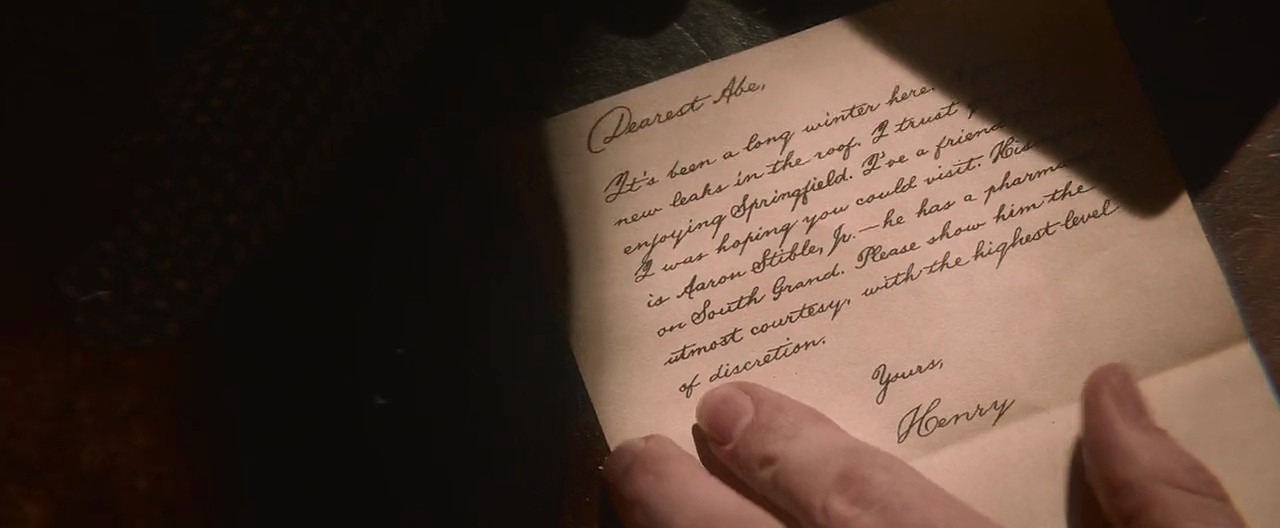 Dearest Abe,
It's been a long winter here.
new leaks in the roof. I trust
enjoying Springfield. I've a friend
I was hoping you could visit. His
is Aaron Stible, Jr.—he has a
on South Grand. Please show him the
utmost courtesy, with the highest level
of discretion.
Yours,
Henry